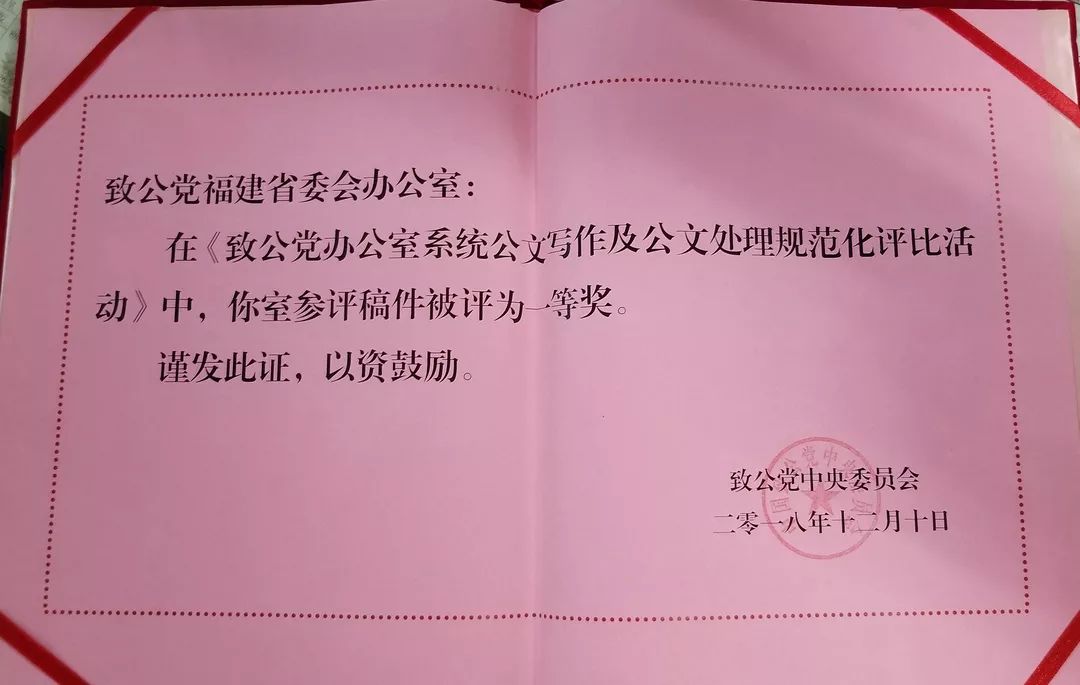 致公党福建省委会办公室：
在《致公党办公室系统公文写作及公文处理规范化评比活
动》中，你室参评稿件被评为一等奖。
谨发此证，以资鼓励。
致公党中央委员会
二零一八年十二月十日